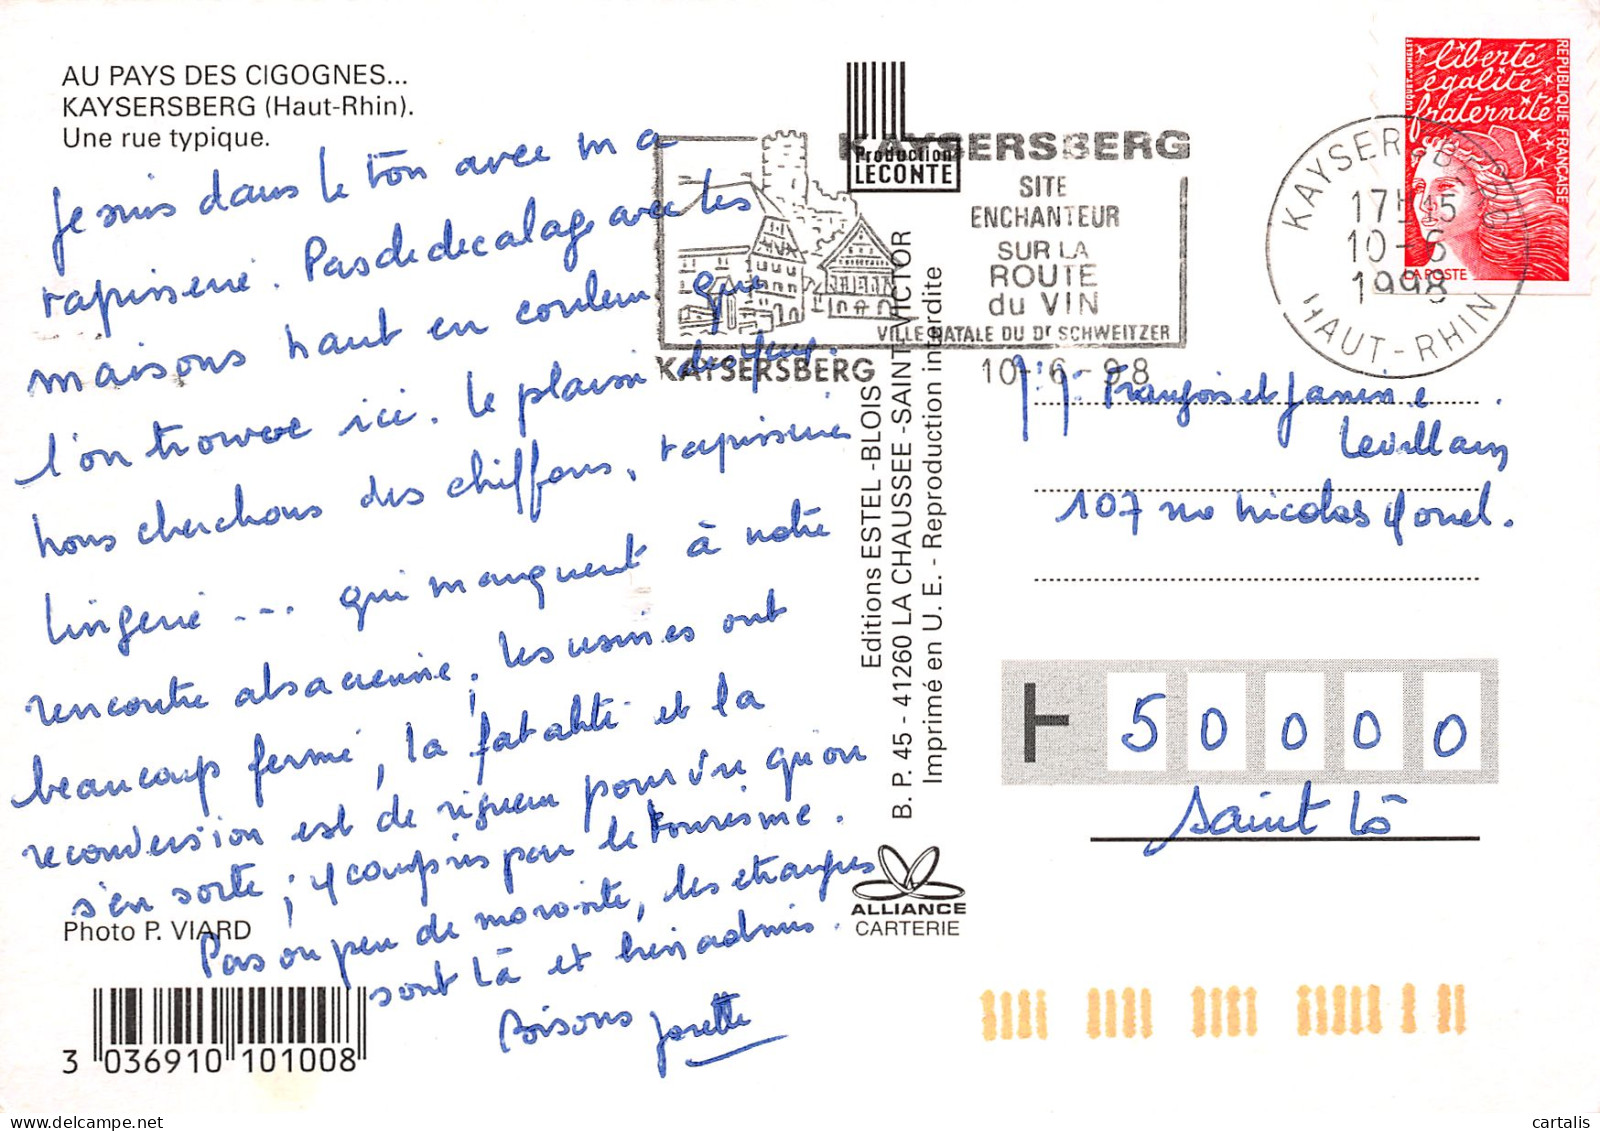 AU PAYS DES CIGOGNES...
KAYSERSBERG (Haut-Rhin).
Une rue typique.
Je suis dans le ton avec ma
tapisserie. Pas de decalage avec les
maisons haut en couleur que
l'on trouve ici. Le plaisir des yeux.
Nous cherchons des chiffons, tapisserie
lingerie --- qui manquent à notre
rencontre alsacienne, les usines ont
beaucoup fermé, la fatalité et la
reconversion est de rigueur pourvu qu'on
s'en sorte ; y compris par le tourisme.
Pas ou peu de morosité, les étrangers
sont là et bien admis.
Bisous Josette
Photo P. VIARD
3 036910 101008
Production
LECONTE
KAYSERSBERG
SITE
ENCHANTEUR
SUR LA
ROUTE
du VIN
VILLE NATALE DU Dr SCHWEITZER
KAYSERSBERG 10-6-98
Editions ESTEL -BLOIS
B. P. 45 - 41260 LA CHAUSSEE -SAINT VICTOR
Imprimé en U. E. - Reproduction interdite
ALLIANCE
CARTERIE
liberté
égalité
fraternité
REPUBLIQUE FRANÇAISE
LUQUET-JUMELET
LA POSTE
KAYSERSBERG
17H15
10-6
1998
HAUT-RHIN
François et Janine
Levillain
107 rue Nicolas
50000
Saint Lô
cartalis